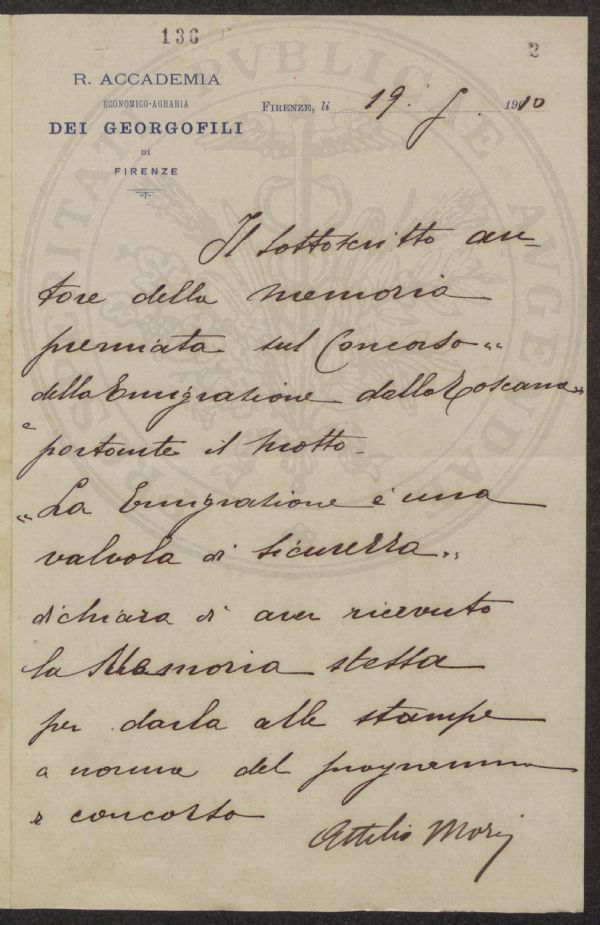 136
2
R. ACCADEMIA
ECONOMICO-AGRARIA
DEI GEORGOFILI
DI
FIRENZE
FIRENZE, li 19. G. 1910
PROSPERITATI PUBLICAE AUGENDAE
Il sottoscritto au-
tore della memoria
premiata sul Concorso "
della Emigrazione dalla Toscana "
e portante il motto -
"La Emigrazione è una
valvola di sicurezza"
dichiara di aver ricevuto
la Memoria stessa
per darla alle stampe
a norma del programma
e concorso
Attilio Mori